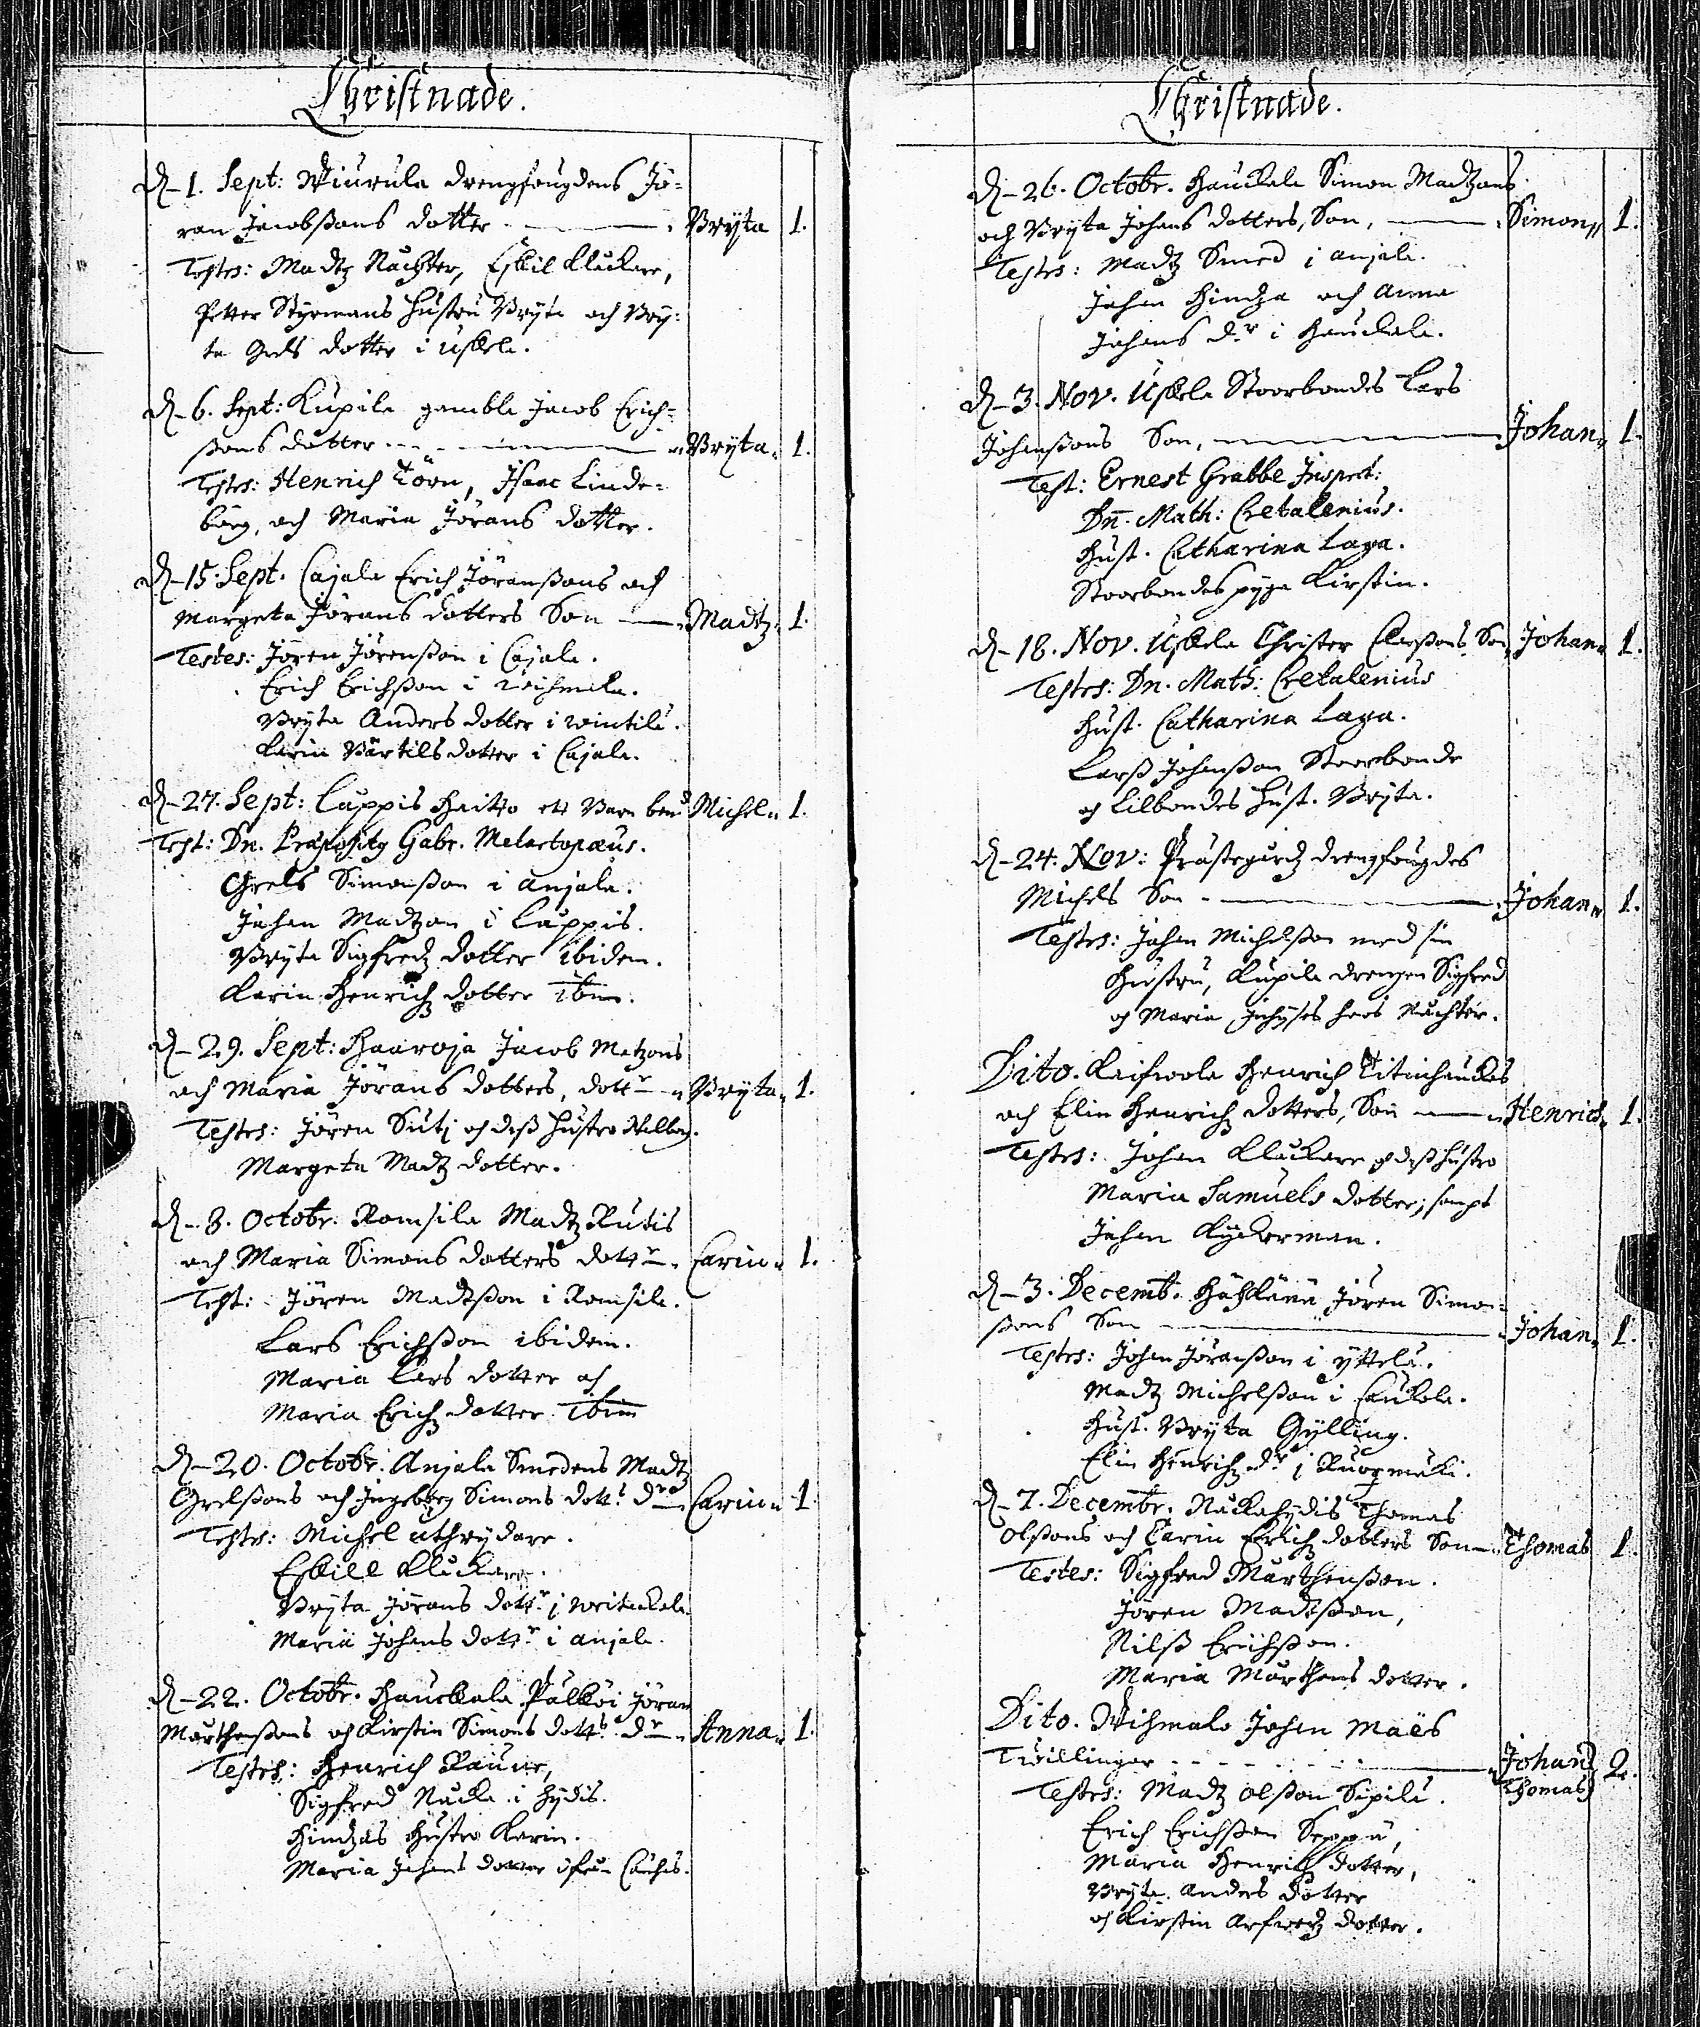 Christnade.
D. 1. Sept: Wiurula drengfougdens Jö-
ran Jacobßons dotter Bryta 1.
Testes: Madtz Nachter, Eskil Kluckare,
Petter Styrmans hustru Bryta och Bry-
ta Grels dotter i Uskela.
D. 6. Sept: Kupila gamble Jacob Erich-
ßons dotter Bryta 1.
Testes: Henrich Törn, Isaac Linde-
borg, och Maria Jörans dotter.
D. 15. Sept. Cajala Erich Jöranßons och
Margeta Jörans dotters Son Madtz 1.
Testes: Jören Jörenßon i Cajala.
Erich Erichßon i
Bryta Anders dotter i Wintilä.
Karin Bärtils dotter i Cajala.
D. 27. Sept: Lappis Haitto ett Barn ben:d Michel 1.
Test: Dn. Præposity Gabr. Melartopæus.
Grels Simonßon i Anjala.
Johan Madtzon i Lappis.
Bryta Sigfredz dotter ibidem.
Karin Henrichz dotter ibm.
D. 29. Sept: Haaroja Jacob Matzons
och Maria Jörans dotters, dottr Bryta 1.
Testes: Jören Suti och deß hustro Walborg.
Margeta Madtz dotter.
D. 8. Octobr. Romsila Madtz Rutis
och Maria Simons dotters dottr Carin 1.
Test: Jören Madtßon i Romsila.
Lars Erichßon ibidem.
Maria Lars dotter och
Maria Erichz dotter ibim
D. 20. Octobr. Anjala Smedens Madtz
Grelßons och Ingeborg Simons dott:s dr Carin 1.
Testes: Michel Uthrydare.
Eskill Kluckare.
Bryta Jörans dottr i
Maria Johans dottr i Anjala.
D. 22. Octobr. Hauckala Pälköi Jöran
Mårthenßons och Kirstin Simons dott:s dr Anna 1.
Testes: Henrich Raune,
Sigfred Nacka i Hydis.
Hindzas hustro Karin.
Maria Johans dotter ifrån
Christnade.
D. 26. Octobr. Hauckala Simon Madtzons
och Bryta Johans dotters, Son, Simon 1.
Testes: Madtz Smed i Anjala.
Johan Hindza och Anna
Johans dr i Hauckala.
D. 3. Nov. Uskela Stoorbondes Lars
Johanßons Son, Johan 1.
Test: Ernest Grabbe Inspect:
Dn. Math: Cretalenius.
Hust. Catharina Laga.
Stoorbondes pyga Kirstin.
D. 18. Nov. Uskela Christer Claßons Son, Johan 1.
Testes: Dn. Math: Cretalenius
Hust. Catharina Laga.
Larß Johanßon Stoorbonde
och Lilbondes Hust. Bryta.
D. 24. Nov: Prästegårdz drengfougdes
Michels Son Johan 1.
Testes: Johan Michelßon med sin
hustru, Kupila drengen Sigfred
och Maria hos Nachter.
Dito. Kaifwola Henrich Titinhauckas
och Elin Henrichz dotters, Son Henrich 1.
Testes: Johan Kluckare och deß hustro
Maria Samuels dotter, sampt
Johan Ryckerman.
D. 3. Decemb. Häskänä Jören Simon-
ßons Son Johan 1.
Testes: Johan Jöranßon i Ytteln.
Madtz Michelßon i Caukola.
Hust. Bryta Gylling.
Elin Henrichz dr i Ruotzmäki.
D. 7. Decembr. Nackahydis Thomas
Olßons och Carin Erichz dotters Son Thomas 1.
Testes: Sigfred Mårthenßon.
Jören Madtßon,
Nilß Erichßon.
Maria Mårthens dotter.
Dito. Wihmalo Johan Maës
Twillingar Johan
Thomas 2.
Testes: Madtz Olßon Sipilä.
Erich Erichßon Seppä,
Maria Henrichz dotter,
Bryta Anders dotter
och Kirstin Arfwedz dotter.